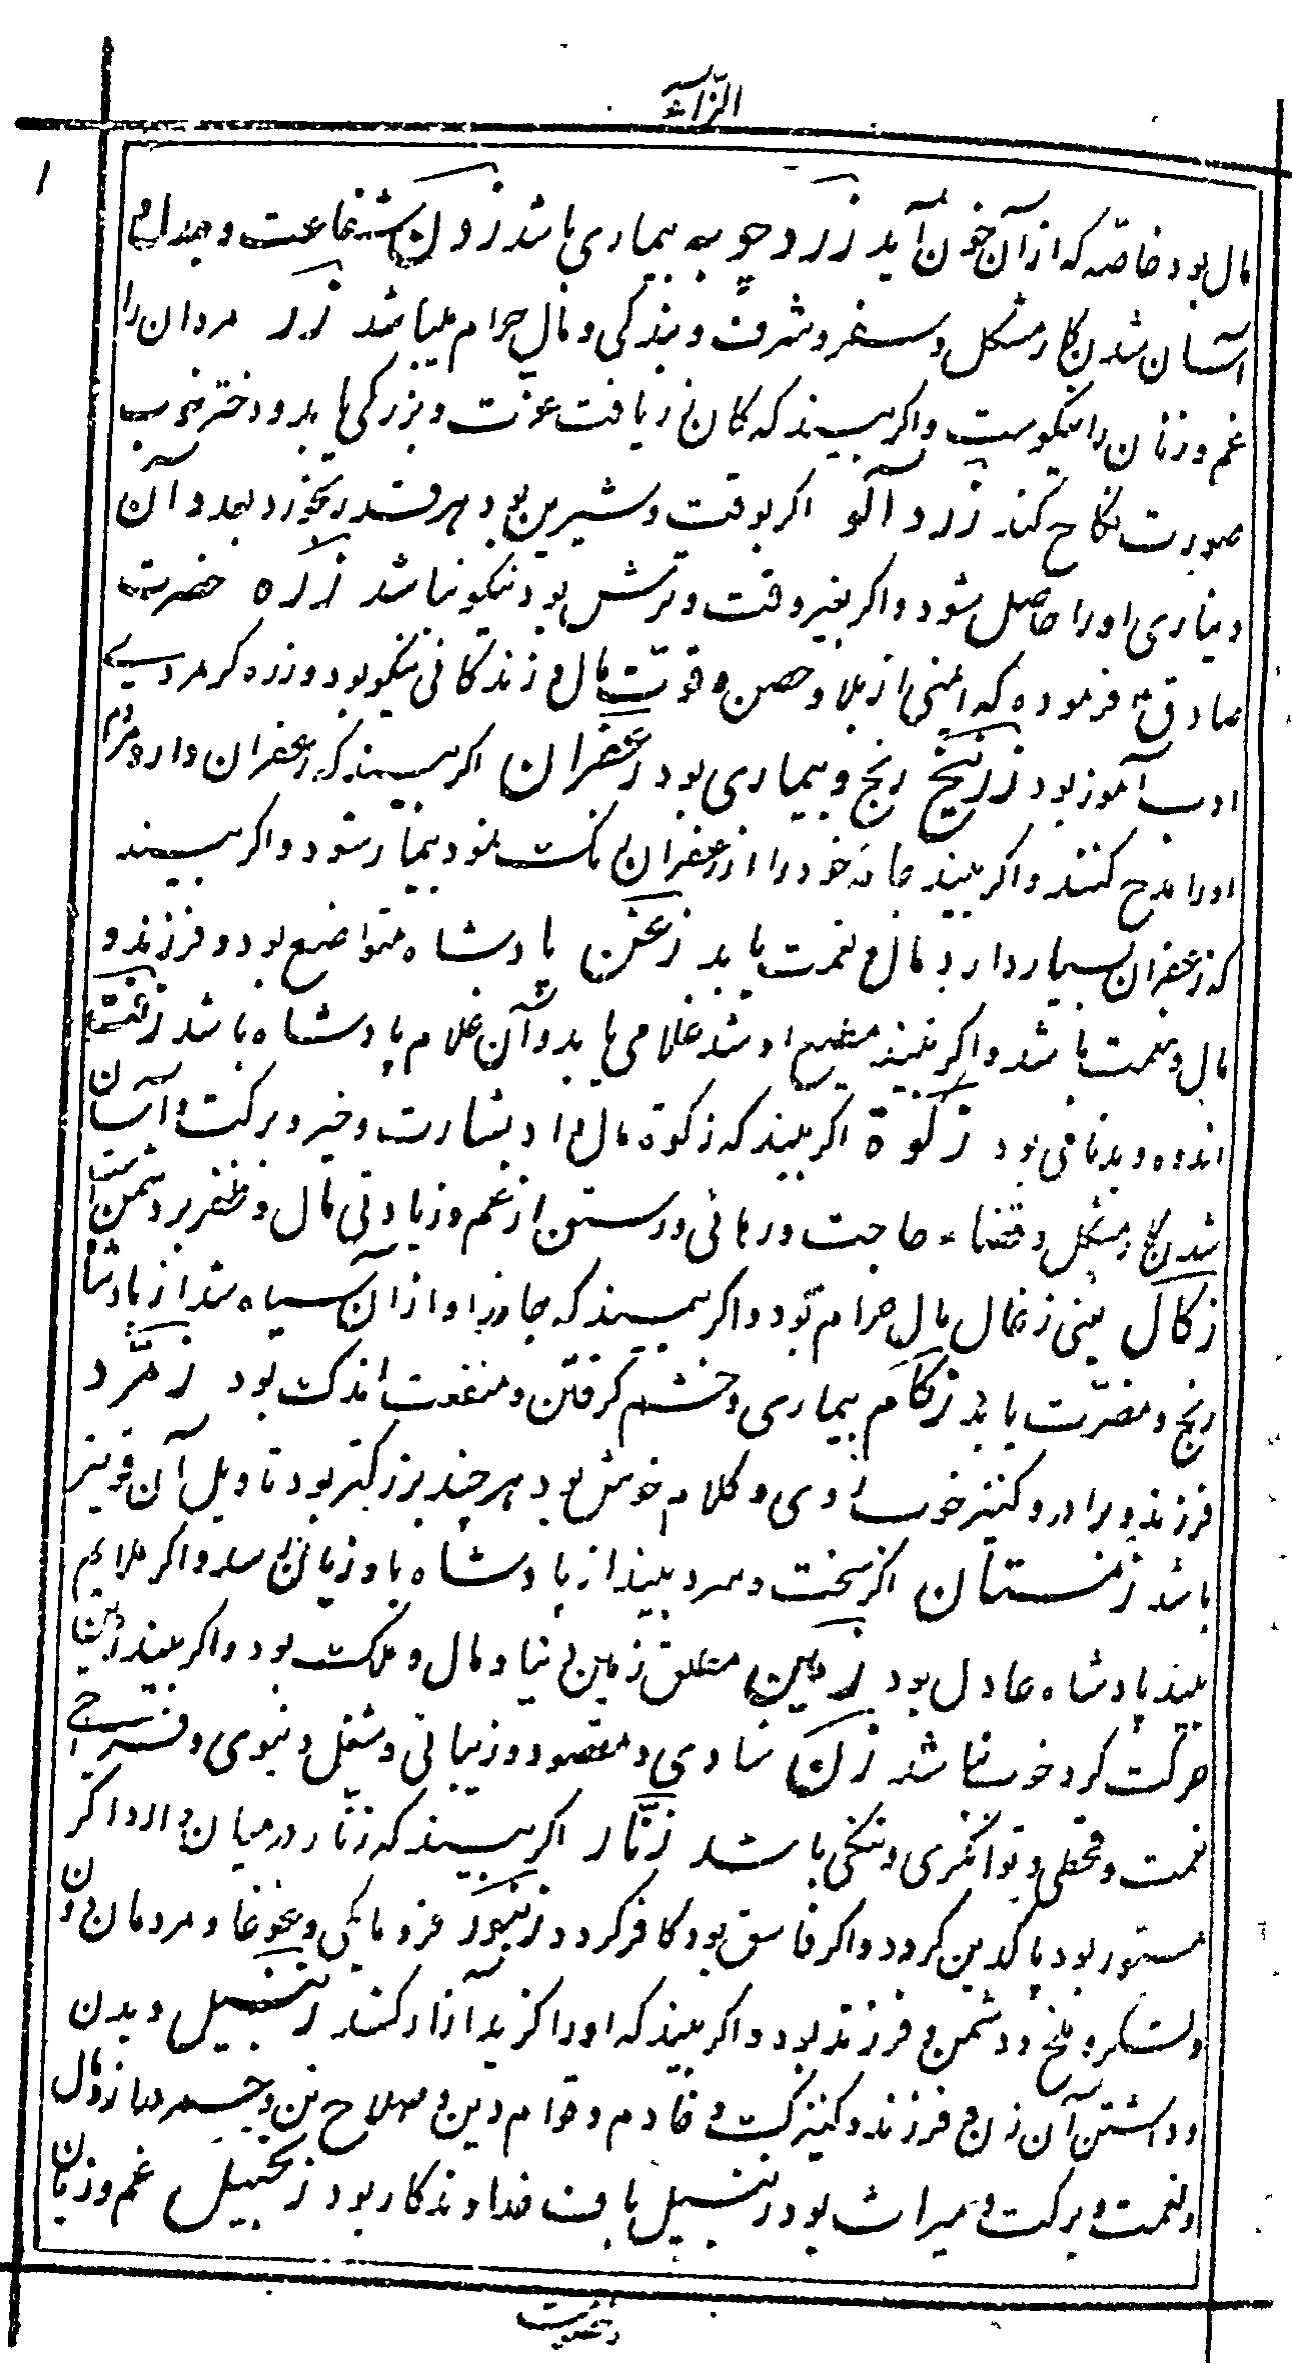 الزّاء
مال بود خاصّه که از آن خون آید زردچوبه بیماری باشد زدن شفاعت و جدل و
آسان شدن کار مشکل و سفر و شرف و بندگی و مال حرام میباشد زر مردان را
غم و زنان را نیکوست و اگر بیند که کان زر یافت عزت و بزرگی یابد و دختر خوب
صورت نکاح کند زردآلو اگر بوقت و شیرین بود بهر قدر که خورد بعدد آن
دیناری او را حاصل شود و اگر بغیر وقت و ترش بود نیکو نباشد زره حضرت
صادق ع فرموده که ایمنی از بلا و حصن و قوّت مال و زندگانی نیکو بود و زره گر مردی
ادب آموز بود زرنیخ رنج و بیماری بود زعفران اگر بیند که زعفران دارد مردم
او را مدح کنند و اگر بیند جامه خود را از زعفران بیمار شود و اگر بیند
که زعفران بسیار دارد مال و نعمت یابد زغن پادشاه متواضع بود و فرزند و
مال و نعمت باشد و اگر بیند مطیع او شد غلامی یابد و آن غلام پادشاه باشد زفت
اندوه و بدنامی بود زکوة اگر بیند که زکوة مال داد بشارت و خیر و برکت و آسان
شدن کار مشکل و قضاء حاجت و رهائی و رستن از غم و زیادتی مال و ظفر بر دشمن است
زکال یعنی زغال مال حرام بود و اگر بیند که جامه او از آن سیاه شد از پادشاه
رنج و مضرّت یابد زکام بیماری و خشم گرفتن و منفعت اندک بود زمرّد
فرزند و برادر و کنیز خوب روی و کلام خوش بود هر چند بزرگتر بود تاویل آن قویتر
باشد زمستان اگر سخت و سرد بیند از پادشاه باو زیان رسد و اگر ملایم
بیند پادشاه عادل بود زمین متعلق زمین دنیا و مال و ملک بود و اگر بیند زمین
حرکت کرد خوب نباشد زن شادی و مقصود و زیبائی و شغل دنیوی و فراخی
نعمت و قحطی و توانگری و تنگی باشد زنّار اگر بیند که زنّار در میان دارد اگر
مستور بود پاکدین گردد و اگر فاسق بود کافر گردد زنبور فرومایگی و غوغا و مردمان دون
و لشکر و ملخ و دشمن و فرزند بود و اگر بیند که او را گزید آزار کشد زنبیل دیدن
و داشتن آن زن و فرزند و کنیزک و خادم و قوام دین و صلاح تن و مال
و نعمت و برکت و میراث بود زنبیل باف خداوند کار بود زنجبیل غم و زیان